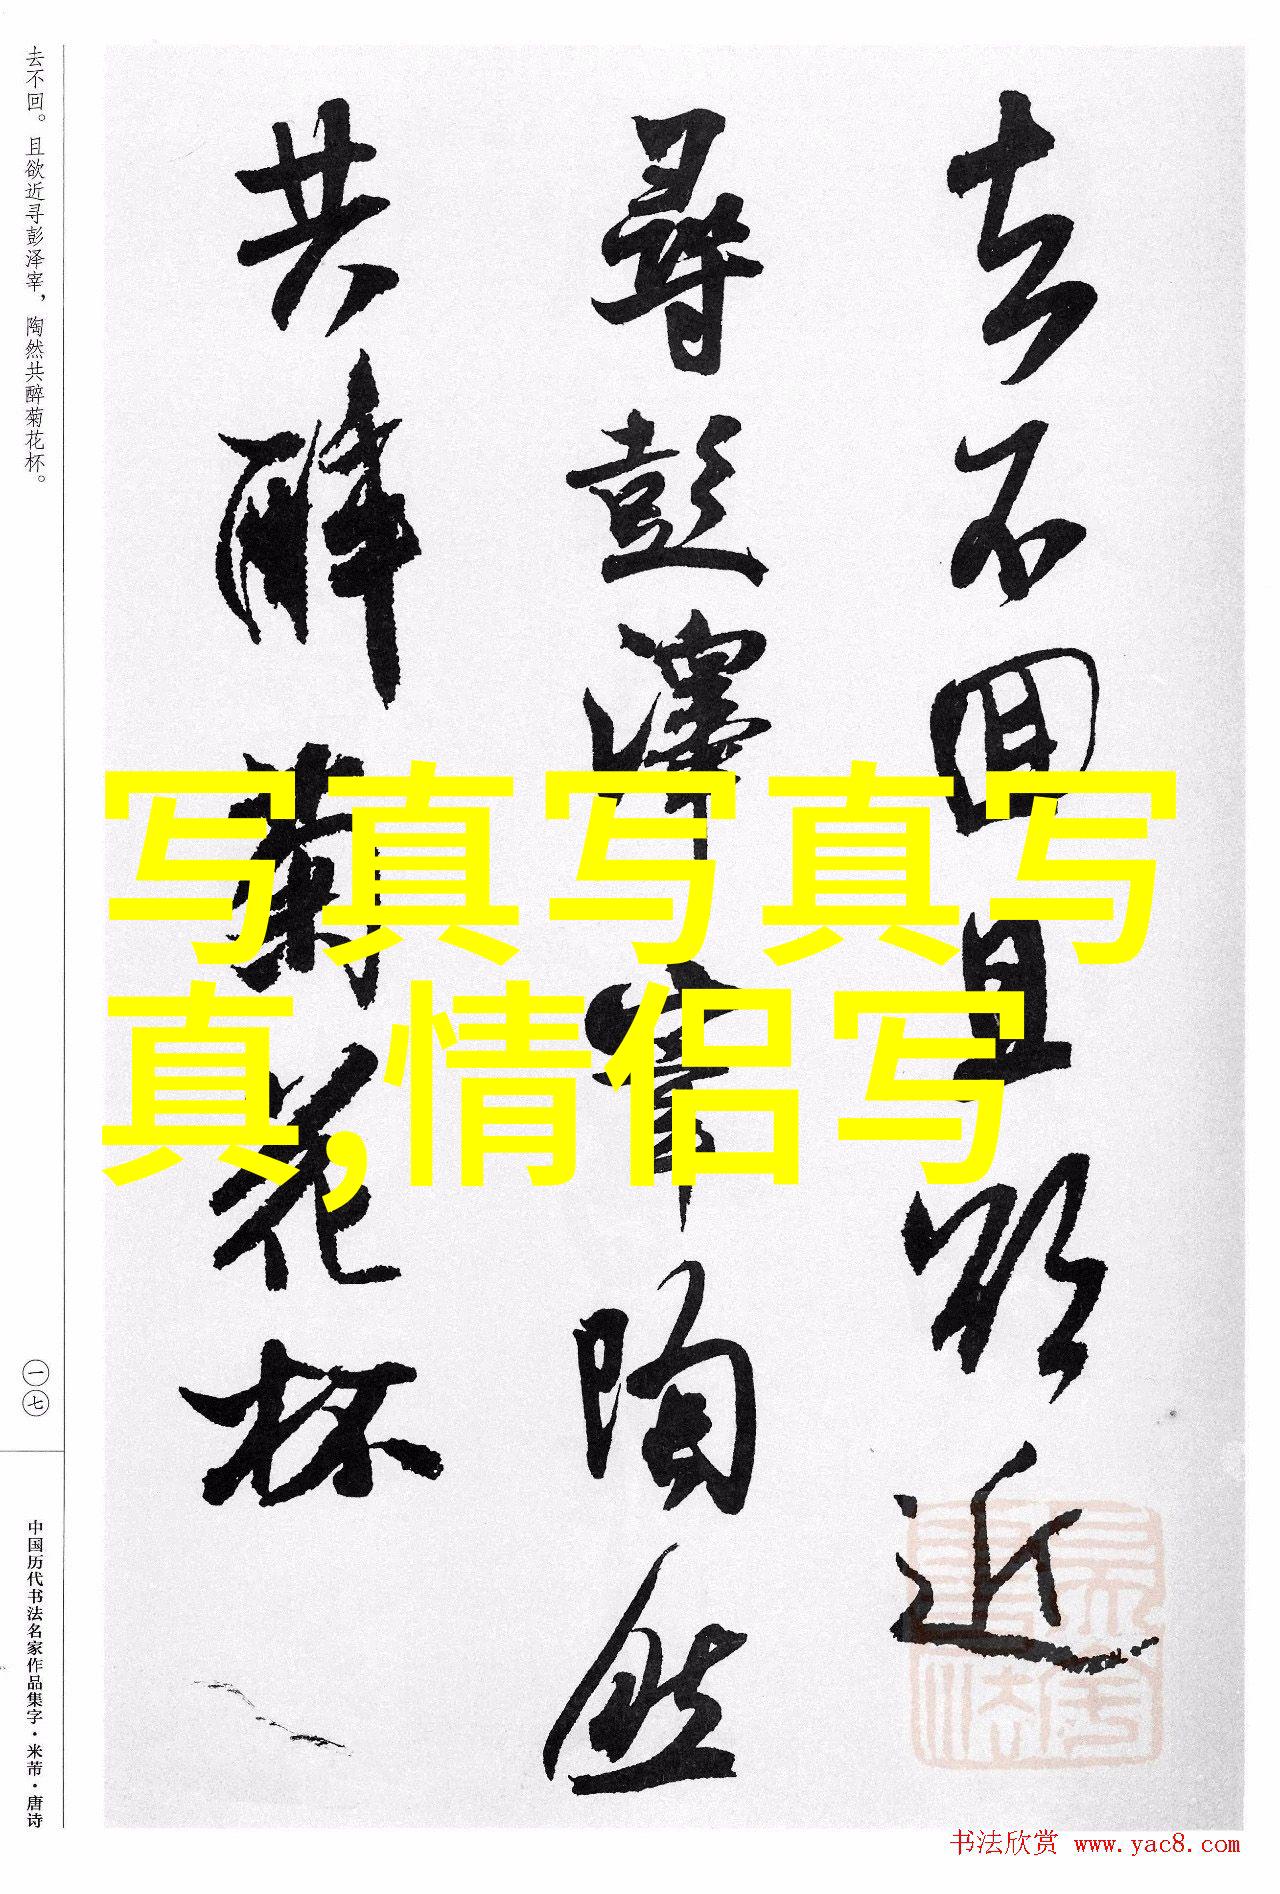 去不回且欲近
尋彭澤宰陶然
共醉菊花杯
写真写真写
真,情侣写
去不回。且欲近寻彭泽宰，陶然共醉菊花杯。
一七
中国历代书法名家作品集字·米芾·唐诗
书法欣赏 www.yac8.com